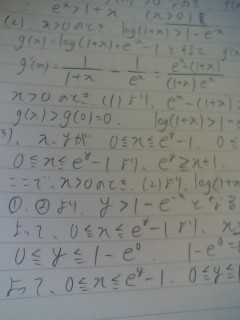 e^x > 1+x (x>0)
(2). x>0のとき log(1+x)>1-e^-x
g(x)=log(1+x)+e^-x-1 とすると g(x
g'(x)=1/(1+x) - 1/e^x = (e^x-(1+x))/((1+x)e^x)
x>0のとき (1)より, e^x-(1+x)>
g(x)>g(0)=0. log(1+x)>1-
3). x, yが 0≦x≦e^y-1. 0≦
0≦x≦e^y-1より. e^y≧x+1.
ここで. x>0のとき (2)より, log(1+x
①, ②より. y>1-e^-x となる
よって. 0≦x≦e^y-1より. x=
0≦y≦1-e^0. 1-e^0=
よって, 0≦x≦e^y-1. 0≦y≦